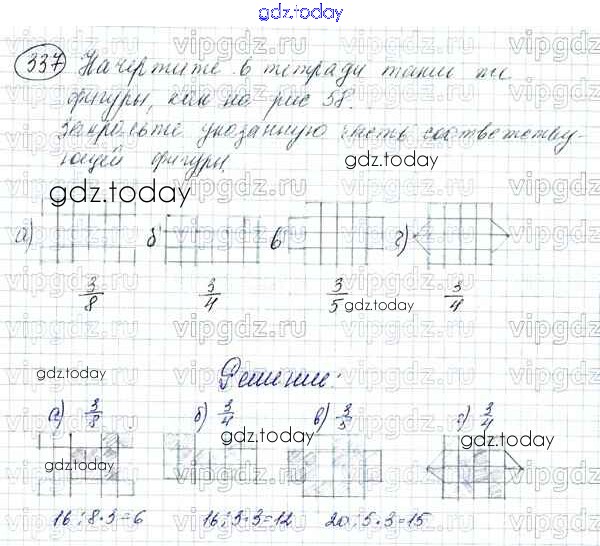 gdz.today
337 Начертите в тетради такие же
фигуры, как на рис 38.
Закрасьте указанную часть соответству-
ющей фигуры.
gdz.today
gdz.today
а) б в г)
3/8 3/4 3/5 3/4
gdz.today
gdz.today
Решение:
а) 3/8 б) 3/4 в) 3/5 г) 3/4
gdz.today
gdz.today
16:8·3=6 16:3·3=12 20:5·3=15
vipgdz.ru